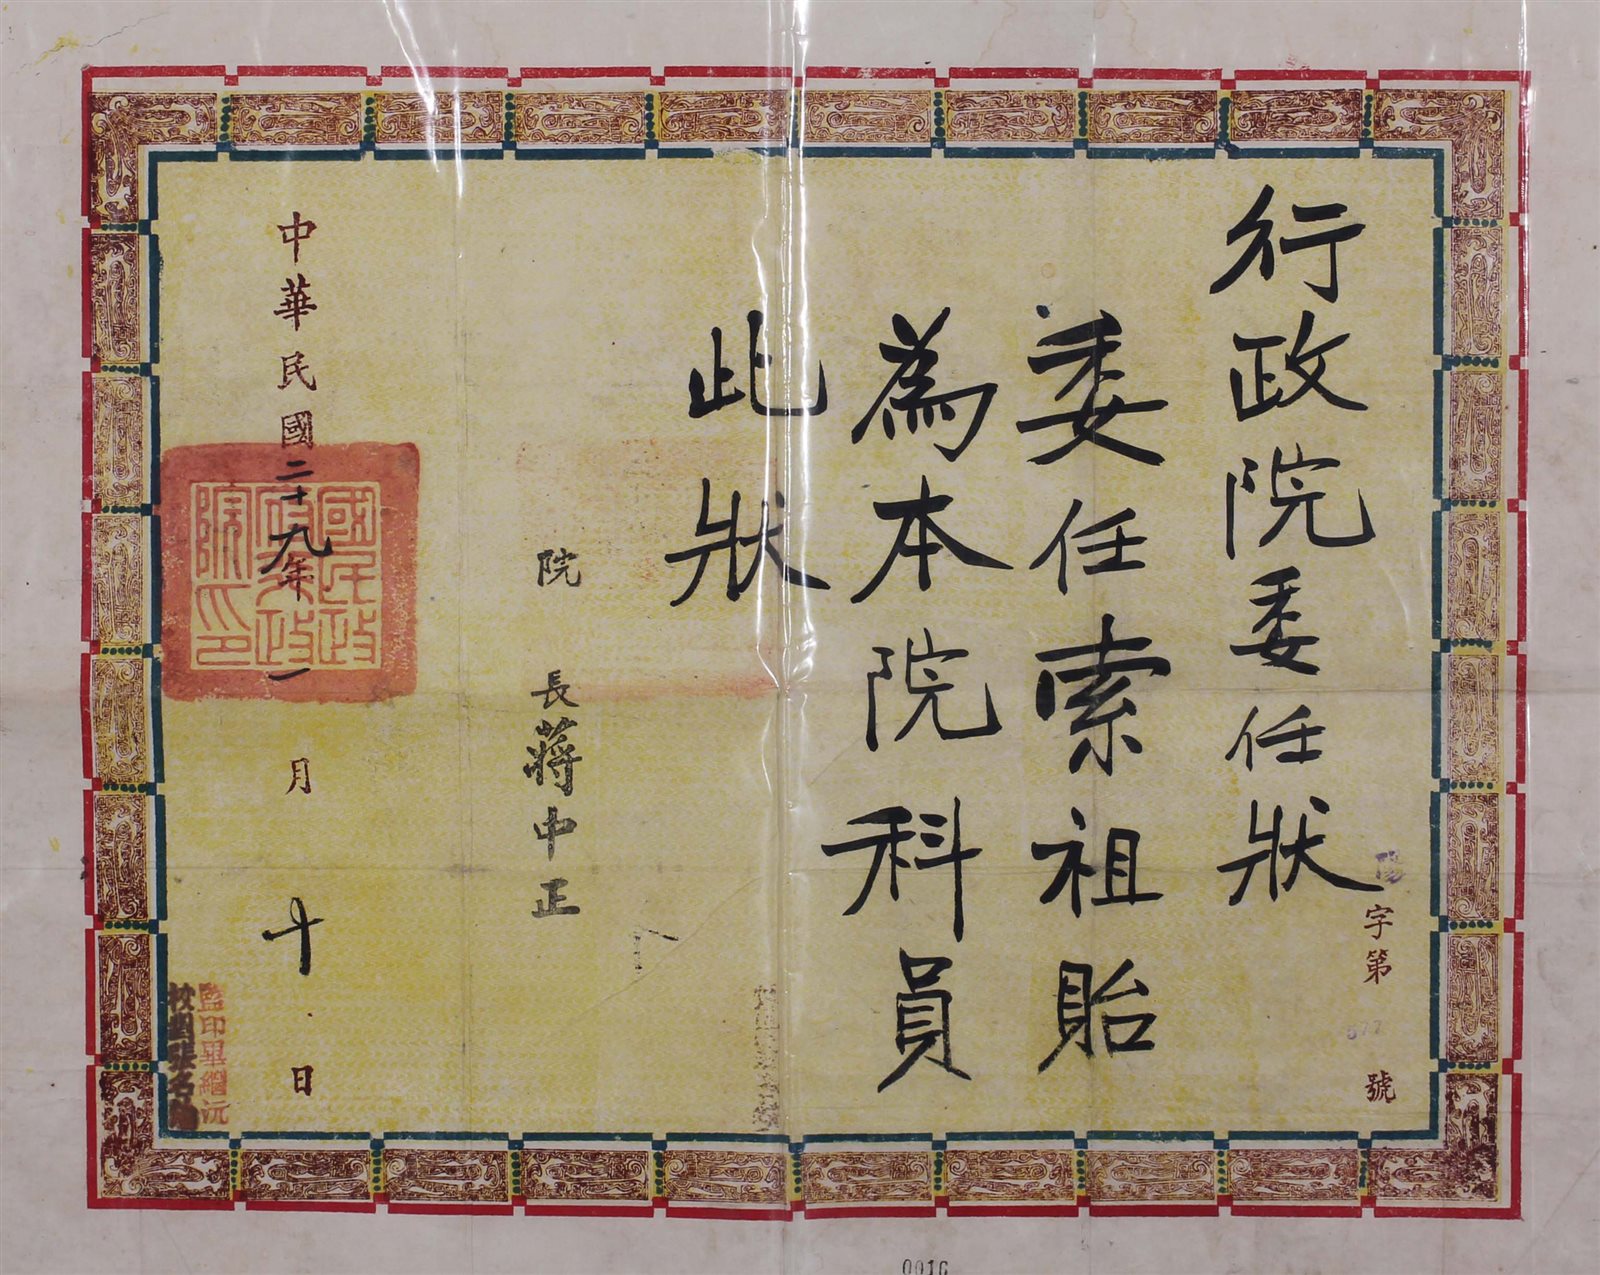 行政院委任狀
陽字第577號
委任索祖貽
為本院科員
此狀
院長蔣中正
中華民國二十九年一月十日
國民政府行政院印
監印畢繼沅
校對張名
0016